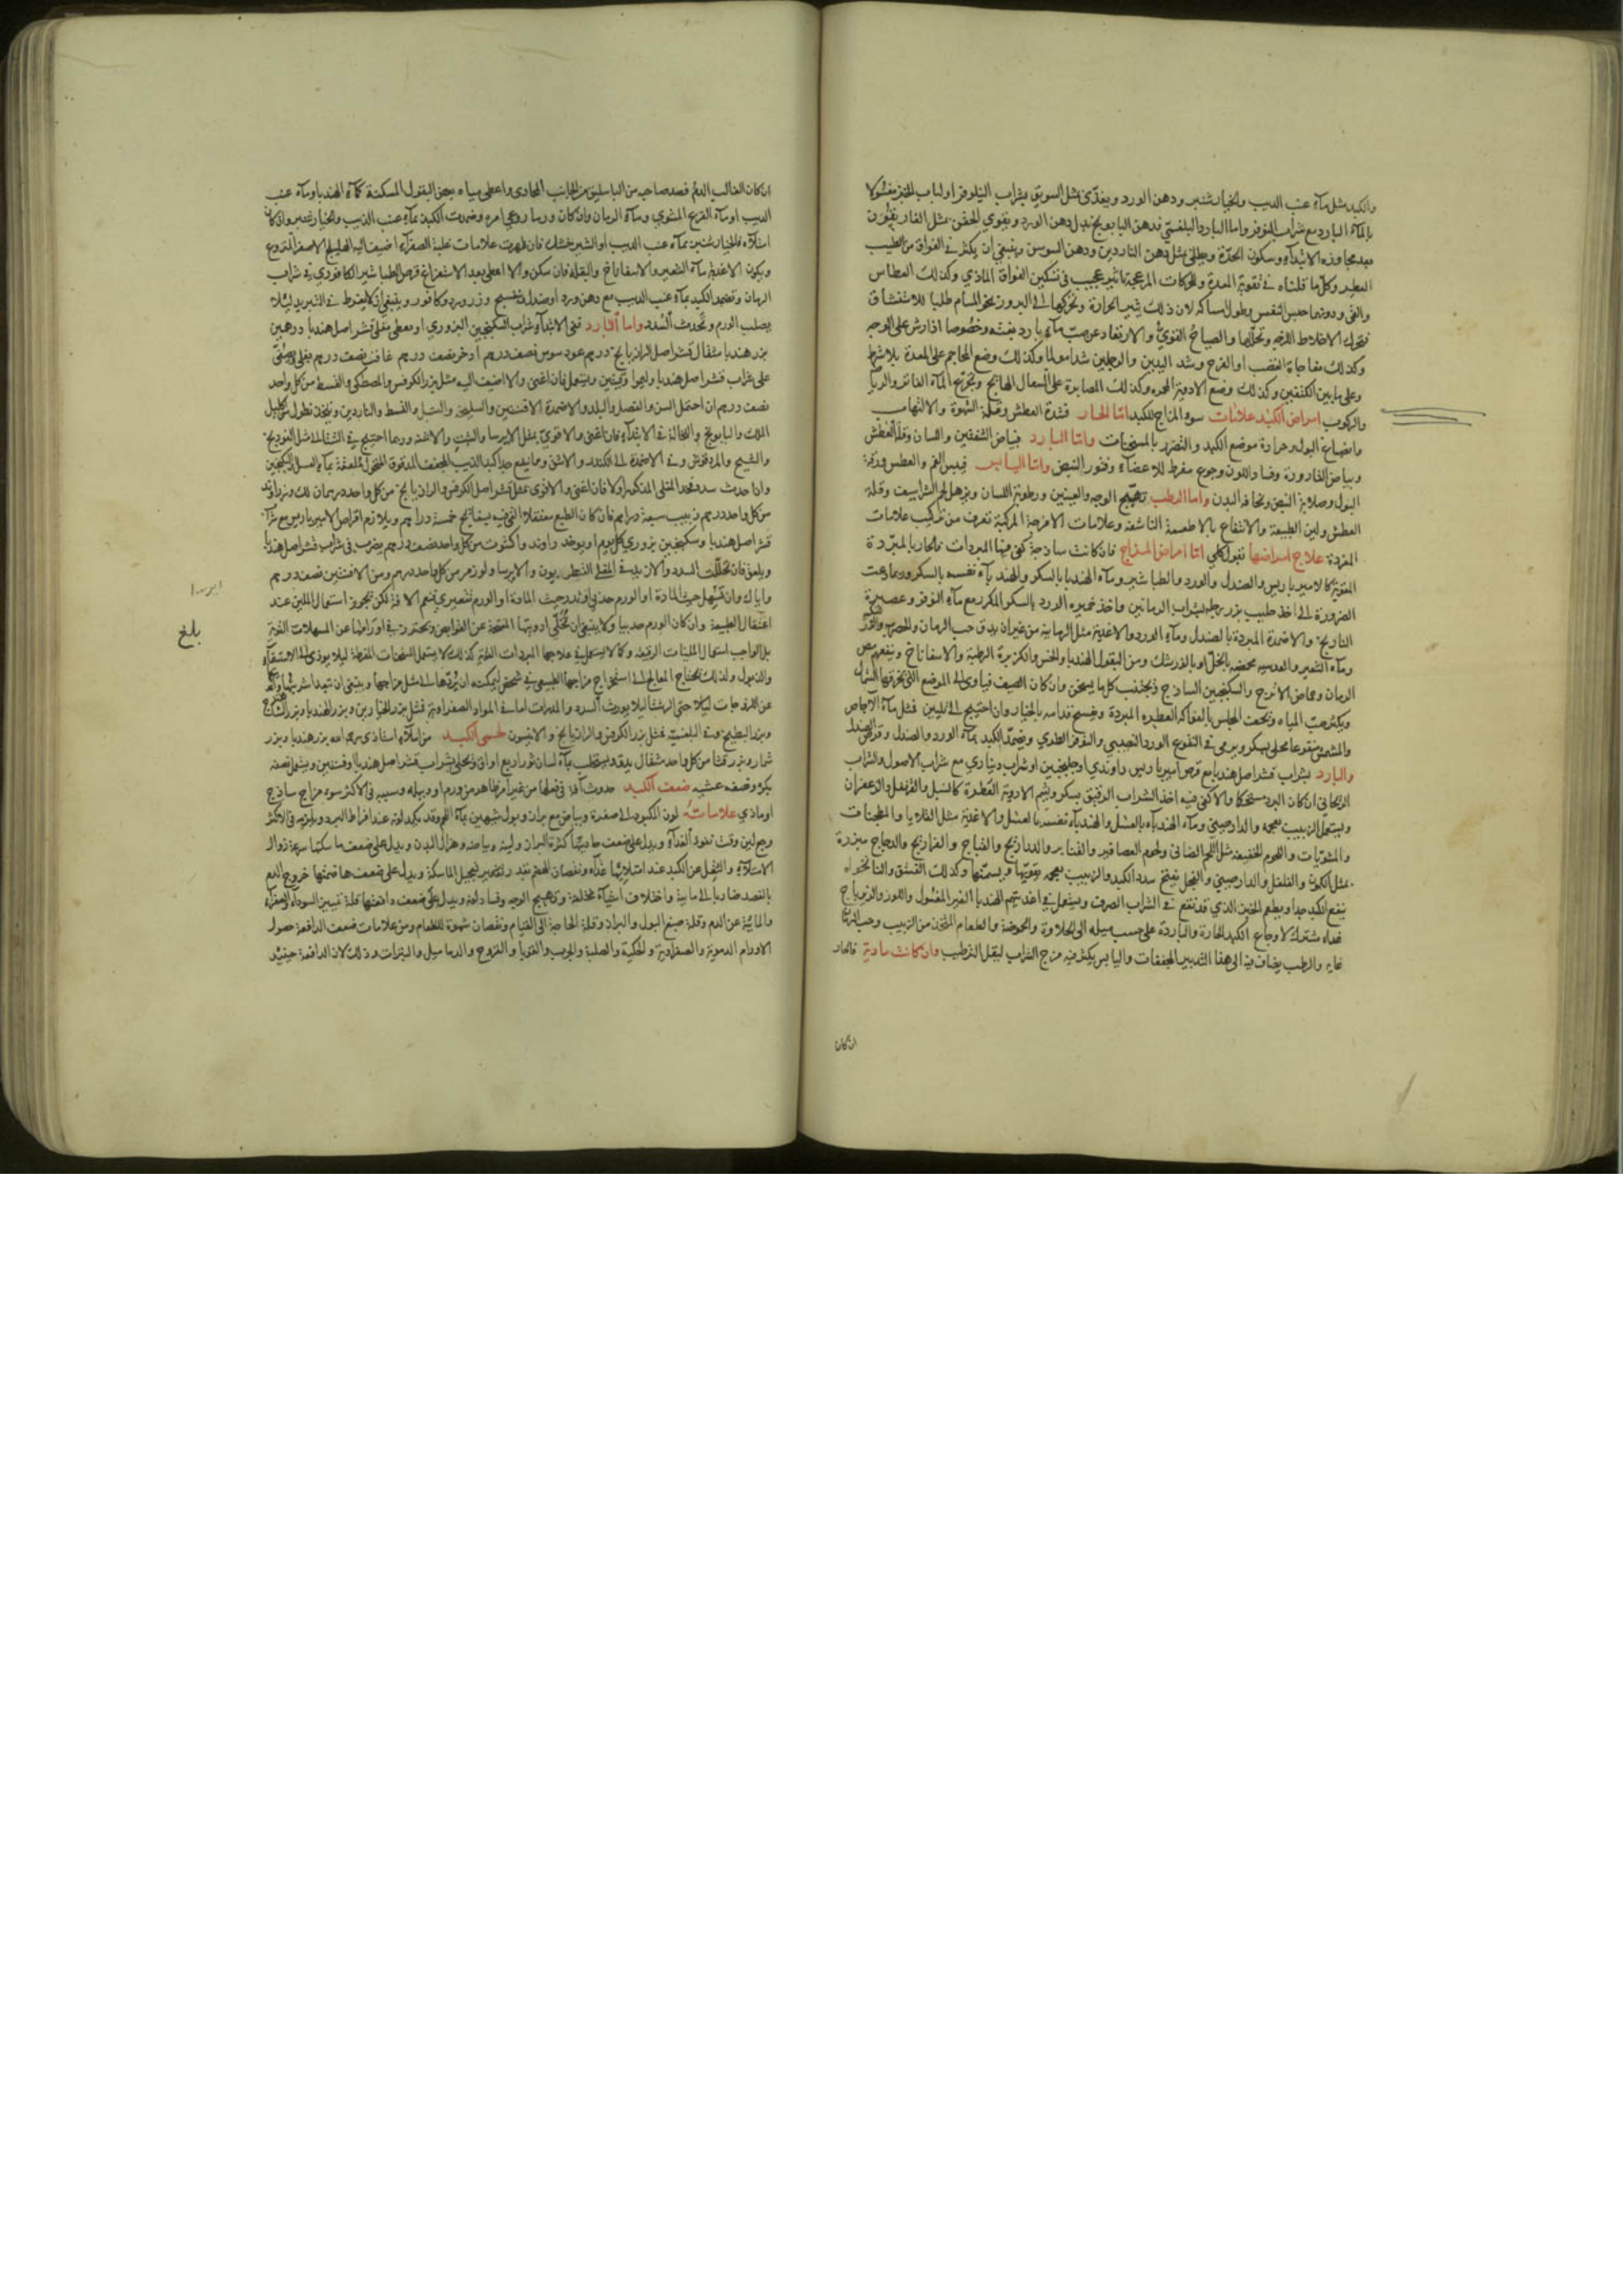 والكبد مثل مآء عنب الديب والخيار شنبر ودهن الورد ويغذى بمثل السويق بشراب النيلوفر او لباب الخبز مغسولا
بالمآء البارد مع شراب النوفر واما البارد البلغمي فدهن البابونج بدل دهن الورد ويقوي الحقن بمثل الغاريقون
بعد مجاوزة الابتدآء وسكون الحدة ويطلى بمثل دهن الناردين ودهن السوسن وينبغي ان يكثر في الفواق من الطيب
العطر وكل ما قلناه في تقوية المعدة وللحركات المزعجة تاثير عجيب في تسكين الفواق المادي وكذلك العطاس
والقي ودونهما حبس النفس وطول امساكه لان ذلك يثير الحرارة ويحركها الى البروز نحو المسام طلبا للاستنشاق
فيحرك الاخلاط اللزجه ويحللها والصياح القوي والارتعاد عن صب مآء بارد بغتة وخصوصا اذا رش على الوجه
وكذلك مفاجاة الغضب او الفرح وشد اليدين والرجلين شدا مولما وكذلك وضع المحاجم على المعدة بلا شرط
وعلى ما بين الكتفين وكذلك وضع الادوية المحمره وكذلك المصابرة على السعال الهايج وتجرع المآء الفاتر والرياضة
والركوب امراض الكبد علامات سوء المزاج للكبد اما الحار فشدة العطش وقلة الشهوة والالتهاب
وانصباغ البول وحرارة موضع الكبد والتضرر بالمسخنات واما البارد فبياض الشفتين واللسان وقلة العطش
وبياض القارورة وفساد اللون وجوع مفرط للاعضاء وفتور النبض واما اليابس فيبس الفم والعطش ورقة
البول وصلابة النبض ونحافة البدن واما الرطب تهيج الوجه والعينين ورطوبة اللسان وترهل لحم الشراسيف وقلة
العطش ولين الطبيعة والانتفاع بالاطعمة الناشفة وعلامات الامزجة المركبة تعرف من تركيب علامات
المفردة علاج امراضها نقول كلي اما امراض المزاج فان كانت ساذجة كفى فيها المبدلات فالحار بالمبردة
المقوية كالاميرباريس والصندل والورد والطباشير ومآء الهندبا بالسكر والهندبآء نفسه بالسكر وربما دعت
الضرورة الى اخذ حليب بزر رجله بشراب الرمانين واخذ خميرة الورد بالسكر المكرر مع مآء النوفر وعصيرة
التاريخ والاضمدة المبردة بالصندل ومآء الورد والاغذية مثل الرمانية من غير ان يدق حب الرمان والحصرم
ومآء الشعير والعدسيه محمضه بالخل او بالزرشك ومن البقول الهندبا والخس والكزبرة الرطبة والاسفاناخ وينفعهم مص
الرمان وحماض الاترج والسكنجبين الساذج ويجتنب كل ما يسخن وان كان الصيف فياوى الى الموضع التي تخرقها الشمال
ويكثر صب المياه وتحت المجلس بالفواكه العطره المبردة ويسيح قدامه بالخيار وان احتيج الى تليين فمثل مآء الاجاص
والمشمش منقوعا محلى بسكر ويرمى في النقوع الورد النصيبي والنوفر الطري ويضمد الكبد بمآء الورد والصندل وقرص الصندل
والبارد بشراب قشر اصل هندبا مع قرص اميرباريس راوندي او جلنجبين او شراب ديناري مع شراب الاصول والشراب
الريحاني ان كان البرد مستحكما والا كفى فيه اخذ الشراب الرقيق بسكر وشم الادوية العطرة كالسنبل والقرنفل والزعفران
ويستعمل الزبيب بعجمه والدارصيني ومآء الهندبآء بالعسل والهندبآء نفسه بالعسل والاغذية مثل القلايا والمطجنات
والمشويات واللحوم الخفيفة مثل اللحم الضاني ولحوم العصافير والقنابر والدراريج والقباج والفراريج والدجاج مبزرة
بمثل الكمون والفلفل والدارصيني والفجل يفتح سدد الكبد والزبيب بعجمه يقويها ويسمنها وكذلك الفستق والنانخواه
ينفع الكبد جدا ويطعم الخبز الذي قد نقع في الشراب الصرف ويستعمل في اغذيتهم الهندبا الغير المغسول واللوز والزيرباج
غذاء مشترك لاوجاع الكبد الحارة والباردة على حسب ميله الى الحلاوة والحموضة والطعام المتخذ من الزبيب وحب الرمان
غايه والرطب يضاف فيه الى هذا التدبير المجففات واليابس يكثر فيه مزج الشراب ليقل الترطيب وان كانت مادية فالحار
ان كان
ان كان الغالب الدم فصد صاحبه من الباسليق من الجانب المحاذي واعطى مياه بعض البقول المسكنة كمآء الهندبا ومآء عنب
الديب او مآء القرع المشوي ومآء الرمان وان كان ورما روعي امره وضمدت الكبد بمآء عنب الذيب والخيار شنبر وان كان
امتلآء فالخيار شنبر بمآء عنب الديب او الشير خشك فان ظهرت علامات غلبة الصفرآء اضيف اليه الهليلج الاصفر المنزوع
ويكون الاغذية مآء الشعير والاسفاناخ والبقله فان سكن والا اعطى بعد الاستفراغ قرص الطباشير الكافوري في شراب
الرمان وتضمد الكبد بمآء عنب الديب مع دهن ورد او صندل وبنفسج وزر ورد وكافور وينبغي ان لا يفرط في التبريد ليلا
يصلب الورم وتحدث السدد واما البارد ففي الابتدآء شراب السكنجبين البزوري او يعطى مغلى قشر اصل هندبا درهمين
بزر هندبا مثقال قشر اصل الرازيانج درهم عود سوس نصف درهم اذخر نصف درهم غافت نصف درهم يغلى ويصفى
على شراب قشر اصل هندبا وليموا وقيتين ويستعمل فان اغنى والا اضيف اليه مثل بزر الكرفس والمصطكي والقسط من كل واحد
نصف درهم ان احتمل السن والفصل والبلد والاضمدة الافسنتين والسليخه والسنبل والقسط والناردين ويتخذ نطول من اكليل
الملك والبابونج والنخالة في الابتدآء فان اغنى والا قوي بمثل الايرسا والشبت والاشنه وربما احتيج في الشتا الى مثل الفودنج
والشيح والمردقوش وفي الاضمدة الى الكندر والاشق ومما ينفع جدا كبد الذيب المجفف المدقوق المنخول ملعقة بمآء العسل والسكنجبين
واذا حدثت سدد فخذ المغلى المذكور اولا فان اغنى والا قوى بمثل قشر اصل الكرفس والرازيانج من كل واحد درهمان لك وزراوند
من كل واحد درهم زبيب سبعة دراهم فان كان الطبع معتقلا القي فيه بسفايج خمسة دراهم ويلازم اقراص الاميرباريس مع شراب
قشر اصل هندبا وسكنجبين بزوري كل يوم او يوخذ راوند واكشوت من كل واحد نصف درهم يضرب في شراب قشر اصل هندبا
ويلعق فان تحللت السدد والا زيد في المغلى القنطريون والايرسا ولوز مر من كل واحد درهم ومن الافسنتين نصف درهم
واياك وان تسهل حيث المادة او الورم حدبي او تدر حيث المادة او الورم تقعيري فتعم الافة لكن يجوز استعمال الملين عند
اعتقال الطبيعة وان كان الورم حدبيا ولا ينبغي ان تخلى ادويتها المفتحة عن القوابض ويحترز في اورامها عن المسهلات القوية
بل الواجب استعمال الملينات الرقيقه وكما لا يستعمل في علاجها المبردات القوية كذلك لا يستعمل المسخنات المفرطة ليلا يودي الى الاستسقآء
والذبول ولذلك يحتاج المعالج الى استخراج مزاجها الطبيعي في شخص ليمكنه ان يردها الى مثل مزاجها وينبغي ان تبعد اشربتها
عن اللزوجات ليلا حتى الهشة ليلا يورث السدد والمدرات اما في المواد الصفراوية فمثل بزر الخيارين وبزر الهندبا وبزر
وبزر البطيخ وفي البلغمية فمثل بزر الكرفس والرازيانج والانيسون لحمى الكبد من املآء استاذي رحمه الله بزر هندبا وبزر
شمار وبزر قثا من كل واحد مثقال يدق ويستحلب بمآء لسان ثور اربع اواق ويحلى بشراب قشر اصل هندبا وقيتين ويستعمل نصفه
بكرة ونصفه عشيه ضعف الكبد حدوث آفة في فعلها من غير امر ظاهر من ورم او دبيلة وسببه في الاكثر سوء مزاج ساذج
او مادي علاماته لون المكبود الى صفرة وبياض مع براز وبول شبيهين بمآء اللحم وقد يكمد لونه عند افراط البرد ويلزمه في الاكثر
وجع لين وقت نفوذ الغذآء ويدل على ضعف جاذبتها كثرة البراز ولينه وبياضه وهزال البدن ويدل على ضعف ماسكتها سرعة زوال
الامتلآء والثقل عن الكبد عند امتلائها غذآء ونقصان الهضم بقدر تقصير تعجيل الماسكة ويدل على ضعف هاضمتها خروج الدم
بالفصد ضاربا الى مائية واختلاف اشيآء مختلفة وتهيج الوجه وفساد لونه ويدل على ضعف دافعتها قلة تمييز السودآء والصفرآء
والمائية عن الدم وقلة صبغ البول والبراز وقلة الحاجة الى القيام ونقصان شهوة للطعام ومن علامات ضعف الدافعة حصول
الاورام الدموية والصفراوية والحكية والصلبة والجرب والقوبا والقروح والدماميل والبثرات وذلك لان الدافعة حينئذ
ايرسا
بلغ